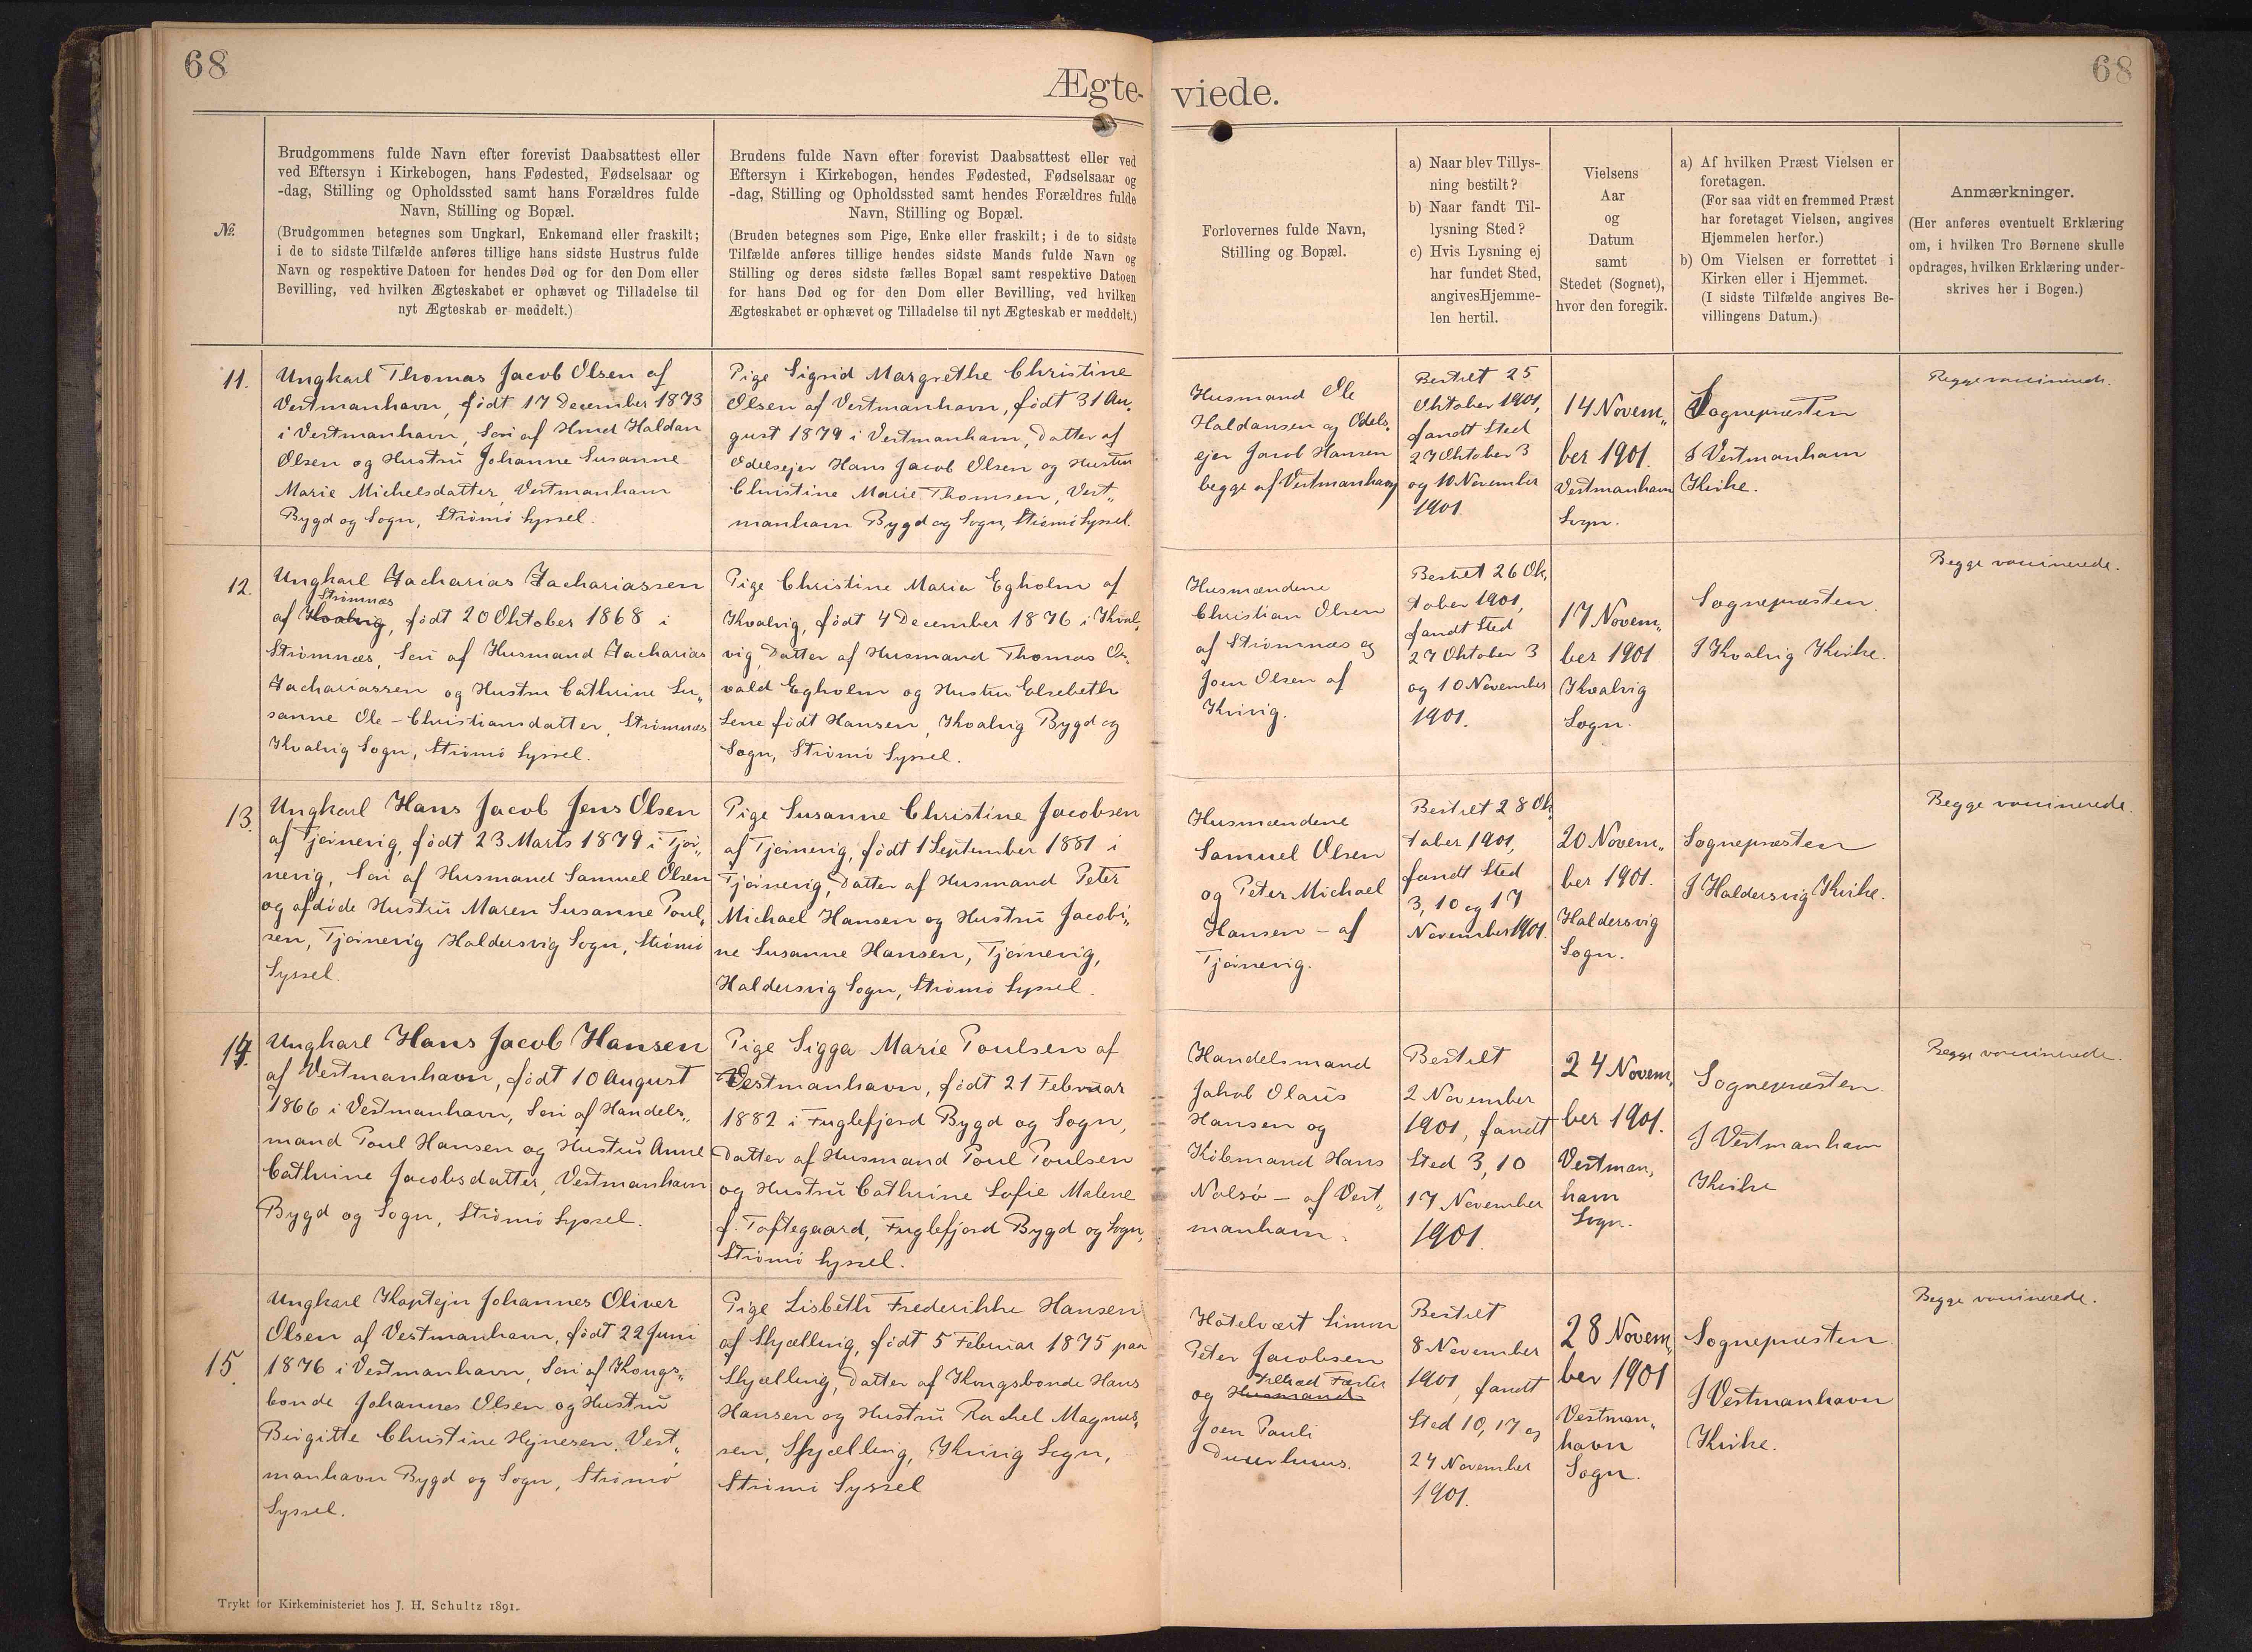 68
68
Ægte-
viede.
№.
Brudgommens fulde Navn efter forevist Daabsattest eller
ved Eftersyn i Kirkebogen, hans Fødested, Fødselsaar og
-dag, Stilling og Opholdssted samt hans Forældres fulde
Navn, Stilling og Bopæl.
(Brudgommen betegnes som Ungkarl, Enkemand eller fraskilt;
i de to sidste Tilfælde anføres tillige hans sidste Hustrus fulde
Navn og respektive Datoen for hendes Død og for den Dom eller
Bevilling, ved hvilken Ægteskabet er ophævet og Tilladelse til
nyt Ægteskab er meddelt.)
Brudens fulde Navn efter forevist Daabsattest eller ved
Eftersyn i Kirkebogen, hendes Fødested, Fødselsaar og
-dag, Stilling og Opholdssted samt hendes Forældres fulde
Navn, Stilling og Bopæl.
(Bruden betegnes som Pige, Enke eller fraskilt; i de to sidste
Tilfælde anføres tillige hendes sidste Mands fulde Navn og
Stilling og deres sidste fælles Bopæl samt respektive Datoen
for hans Død og for den Dom eller Bevilling, ved hvilken
Ægteskabet er ophævet og Tilladelse til nyt Ægteskab er meddelt.)
Forlovernes fulde Navn,
Stilling og Bopæl.
a) Naar blev Tillys-
ning bestilt?
b) Naar fandt Til-
lysning Sted?
c) Hvis Lysning ej
har fundet Sted,
angives Hjemme-
len hertil.
Vielsens
Aar
og
Datum
samt
Stedet (Sognet),
hvor den foregik.
a) Af hvilken Præst Vielsen er
foretagen.
(For saa vidt en fremmed Præst
har foretaget Vielsen, angives
Hjemmelen herfor.)
b) Om Vielsen er forrettet i
Kirken eller i Hjemmet.
(I sidste Tilfælde angives Be-
villingens Datum.)
Anmærkninger.
(Her anføres eventuelt Erklæring
om, i hvilken Tro Børnene skulle
opdrages, hvilken Erklæring under-
skrives her i Bogen.)
11.
Ungkarl Thomas Jacob Olsen af
Vestmanhavn, født 17 December 1873
i Vestmanhavn, Søn af Hmd Haldan
Olsen og Hustru Johanne Susanne
Marie Michelsdatter, Vestmanhavn
Bygd og Sogn, Strömö Syssel.
Pige Sigrid Margrethe Christine
Olsen af Vestmanhavn, født 31 Au„
gust 1879 i Vestmanhavn, Datter af
Odelsejer Hans Jacob Olsen og Hustru
Christine Marie Thomsen, Vest„
manhavn Bygd og Sogn, Strömö Syssel.
Husmand Ole
Haldansen og Odels„
ejer Jacob Hansen
begge af Vestmanhavn
Bestilt 25
Oktober 1901,
fandt Sted
27 Oktober 3
og 10 November
1901.
14 Novem„
ber 1901.
Vestmanhavn
Sogn.
Sognepræsten
I Vestmanhavn
Kirke.
Begge vaccinerede.
12.
Ungkarl Zacharias Zachariassen
Strömnæs
af Kvalvig, født 20 Oktober 1868 i
Strömnæs, Søn af Husmand Zacharias
Zachariassen og Hustru Cathrine Su„
sanne Ole-Christiansdatter, Strömnæs
Kvalvig Sogn, Strömö Syssel.
Pige Christine Maria Egholm af
Kvalvig, født 4 December 1876 i Kval„
vig, Datter af Husmand Thomas Os„
vald Egholm og Hustru Elsebeth
Lene født Hansen, Kvalvig Bygd og
Sogn, Strömö Syssel.
Husmændene
Christian Olsen
af Strömnæs og
Joen Olsen af
Kvivig.
Bestilt 26 Ok„
tober 1901,
fandt Sted
27 Oktober 3
og 10 November
1901.
17 Novem„
ber 1901
Kvalvig
Sogn.
Sognepræsten.
I Kvalvig Kirke.
Begge vaccinerede.
13.
Ungkarl Hans Jacob Jens Olsen
af Tjörnevig, født 23 Marts 1879 i Tjör„
nevig, Søn af Husmand Samuel Olsen
og afdøde Hustru Maren Susanne Poul„
sen, Tjörnevig Haldersvig Sogn, Strömö
Syssel.
Pige Susanne Christine Jacobsen
af Tjörnevig, født 1 September 1881 i
Tjörnevig, Datter af Husmand Peter
Michael Hansen og Hustru Jacobi„
ne Susanne Hansen, Tjörnevig,
Haldersvig Sogn, Strömö Syssel.
Husmændene
Samuel Olsen
og Peter Michael
Hansen – af
Tjörnevig.
Bestilt 28 Ok
tober 1901,
fandt Sted
3, 10 og 17
November 1901.
20 Novem„
ber 1901.
Haldersvig
Sogn.
Sognepræsten
I Haldersvig Kirke.
Begge vaccinerede.
14.
Ungkarl Hans Jacob Hansen
af Vestmanhavn, født 10 August
1866 i Vestmanhavn, Søn af Handels„
mand Poul Hansen og Hustru Anne
Cathrine Jacobsdatter, Vestmanhavn
Bygd og Sogn, Strömö Syssel.
Pige Sigga Marie Poulsen af
Vestmanhavn, født 21 Februar
1882 i Fuglefjord Bygd og Sogn,
Datter af Husmand Poul Poulsen
og Hustru Cathrine Sofie Malene
f. Toftegaard, Fuglefjord Bygd og Sogn,
Strömö Syssel.
Handelsmand
Jakob Olaus
Hansen og
Købmand Hans
Nolsö – af Vest„
manhavn.
Bestilt
2 November
1901, fandt
Sted 3, 10
17 November
1901.
24 Novem„
ber 1901.
Vestman„
havn
Sogn.
Sognepræsten.
I Vestmanhavn
Kirke
Begge vaccinerede.
15.
Ungkarl Kaptejn Johannes Oliver
Olsen af Vestmanhavn, født 22 Juni
1876 i Vestmanhavn, Søn af Kongs„
bonde Johannes Olsen og Hustru
Birgitte Christine Hejnesen, Vest„
manhavn Bygd og Sogn, Strömö
Syssel.
Pige Lisbeth Frederikke Hansen
af Skjælling, født 5 Februar 1875 paa
Skjælling, Datter af Kongsbonde Hans
Hansen og Hustru Rachel Magnus„
sen, Skjælling, Kvivig Sogn,
Strömö Syssel
Hotelvært Simun
Peter Jacobsen
og Husmand
Joen Pauli
Duurhuus.
Bestilt
8 November
1901, fandt
Sted 10, 17 og
24 November
1901.
28 Novem„
ber 1901
Vestman„
havn
Sogn.
Sognepræsten.
I Vestmanhavn
Kirke.
Begge vaccinerede.
Trykt for Kirkeministeriet hos J. H. Schultz 1891.